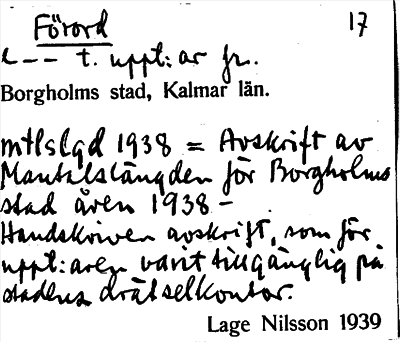 Förord 17
- - - t. uppt:ar fr.
Borgholms stad, Kalmar län.
mtlslgd 1938 = Avskrift av
Mantalslängden för Borgholms
stad åren 1938 -
Handskriven avskrift, som för
uppt:aren varit tillgänglig på
stadens drätselkontor.
Lage Nilsson 1939